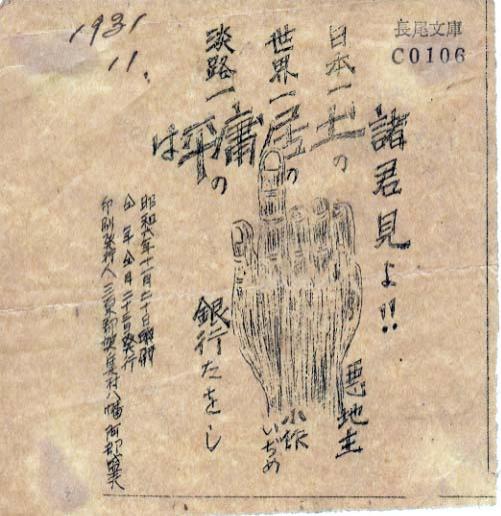 1931
11.
長尾文庫
C0106
諸君見よ!!
日本一の
世界一の
淡路一の
土居庸平は
悪地主
小作いぢめ
銀行たをし
昭和六年十一月二十日印刷
仝年仝月二十三日発行
印刷発行人 三原郡賀集村八幡 阿部